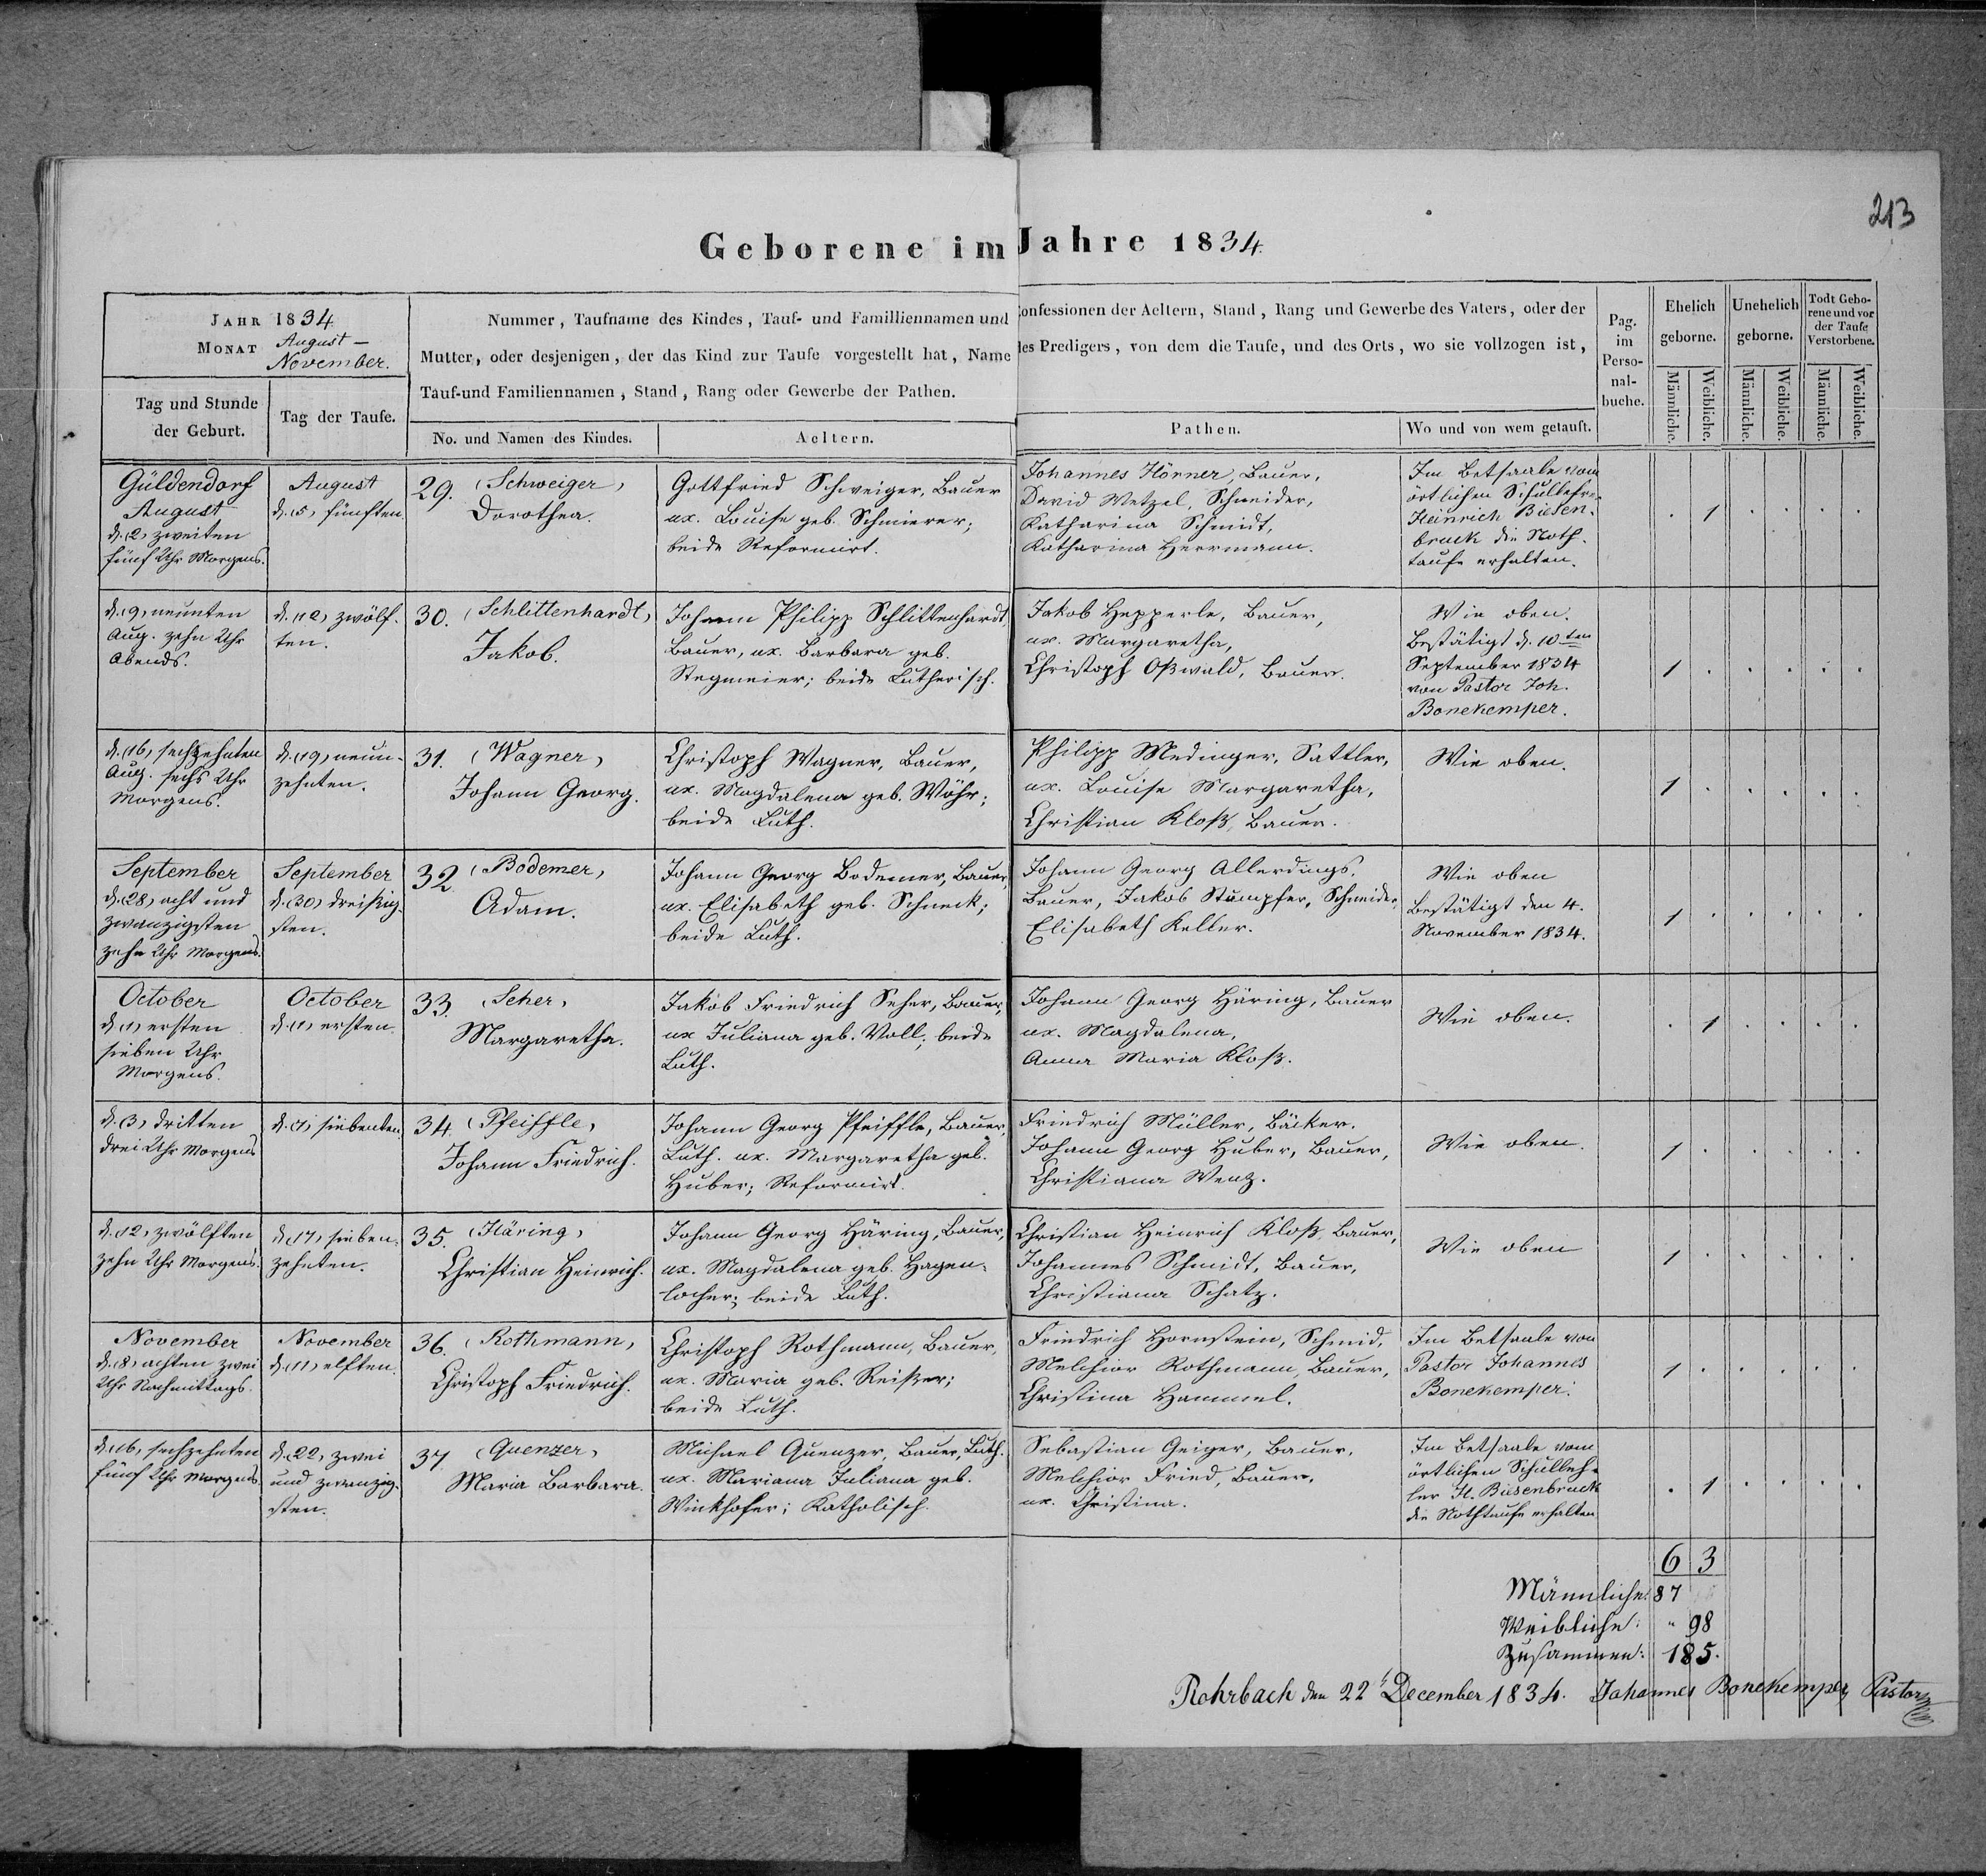 213
Geborene im Jahre 1834.
JAHR 1834
MONAT August –
November.
Tag und Stunde
der Geburt.
Tag der Taufe.
Nummer, Taufname des Kindes, Tauf- und Familliennamen und
Mutter, oder desjenigen, der das Kind zur Taufe vorgestellt hat, Name
Tauf-und Familiennamen, Stand, Rang oder Gewerbe der Pathen.
No. und Namen des Kindes.
Aeltern.
onfessionen der Aeltern, Stand, Rang und Gewerbe des Vaters, oder der
des Predigers, von dem die Taufe, und des Orts, wo sie vollzogen ist,
Pathen.
Wo und von wem getauft.
Pag.
im
Perso-
nal-
buche.
Ehelich
geborne.
Unehelich
geborne.
Todt Gebo-
rene und vor
der Taufe
Verstorbene.
Männliche.
Weibliche.
Männliche.
Weibliche.
Männliche.
Weibliche.
Güldendorf
August
d. (2) zweiten
fünf Uhr Morgens.
August
d. (5) fünften.
29. (Schweiger)
Dorothea.
Gottfried Schweiger, Bauer
ux. Louise geb. Schmierer;
beide Reformirt.
Johannes Hörner, Bauer,
David Wetzel, Schneider,
Katharina Schmidt,
Katharina Herrmann.
Im Betsaale vom
örtlichen Schullehrer
Heinrich Biesen-
bruck die Noth-
taufe erhalten.
. 1 . . . .
d. (9) neunten
Aug. zehn Uhr
Abends.
d. (12) zwölf-
ten.
30. (Schlittenhardt)
Jakob.
Johann Philipp Schlittenhardt,
Bauer, ux. Barbara geb.
Stegmeier; beide Lutherisch.
Jakob Hepperle, Bauer,
ux. Margaretha,
Christoph Oßwald, Bauer.
Wie oben.
Bestätigt d. 10ten
September 1834
von Pastor Joh.
Bonekemper.
1 . . . . .
d. (16) sechzehnten
Aug. sechs Uhr
Morgens.
d. (19) neun-
zehnten.
31. (Wagner)
Johann Georg.
Christoph Wagner, Bauer,
ux. Magdalena geb. Wöhr;
beide Luth.
Philipp Medinger, Sattler,
ux. Louise Margaretha,
Christian Kloß, Bauer.
Wie oben.
1 . . . . .
September
d. (28) acht und
zwanzigsten
zehn Uhr Morgens.
September
d. (30) dreißig-
sten.
32. (Bodemer)
Adam.
Johann Georg Bodemer, Bauer,
ux. Elisabeth geb. Schneck;
beide Luth.
Johann Georg Allerdings,
Bauer, Jakob Stumpfer, Schneider,
Elisabeth Keller.
Wie oben
Bestätigt den 4.
November 1834.
1 . . . . .
October
d. (1) ersten
sieben Uhr
Morgens.
October
d. (1) ersten.
33. (Seher)
Margaretha.
Jakob Friedrich Seher, Bauer,
ux Juliana geb. Voll; beide
Luth.
Johann Georg Häring, Bauer
ux. Magdalena,
Anna Maria Kloß.
Wie oben.
. 1 . . . .
d. (3) dritten
drei Uhr Morgens
d. (7) siebenten.
34. (Pfeiffle)
Johann Friedrich.
Johann Georg Pfeiffle, Bauer,
Luth. ux. Margaretha geb.
Huber; Reformirt.
Friedrich Müller, Bäcker.
Johann Georg Huber, Bauer,
Christiana Wenz.
Wie oben.
1 . . . . .
d. (12) zwölften
zehn Uhr Morgens.
d. (17) sieben-
zehnten.
35. (Häring)
Christian Heinrich.
Johann Georg Häring, Bauer,
ux. Magdalena geb. Hagen-
locher; beide Luth.
Christian Heinrich Kloß, Bauer,
Johannes Schmidt, Bauer,
Christiana Schatz.
Wie oben
1 . . . . .
November
d. (8) achten zwei
Uhr Nachmittags.
November
d. (11) elften.
36. (Rothmann)
Christoph Friedrich.
Christoph Rothmann, Bauer,
ux. Maria geb. Reißer;
beide Luth.
Friedrich Hornstein, Schmid,
Melchior Rothmann, Bauer,
Christina Hammel.
Im Betsaale von
Pastor Johannes
Bonekemper.
1 . . . . .
d. (16) sechzehnten
fünf Uhr Morgens
d. (22) zwei
und zwanzig-
sten.
37. (Quenzer)
Maria Barbara.
Michael Quenzer, Bauer, Luth.
ux. Mariana Juliana geb.
Winkhofer; Katholisch.
Sebastian Geiger, Bauer.
Melchior Fried, Bauer,
ux. Christina.
Im Betsaale vom
örtlichen Schulleh-
rer H. Biesenbruck
die Nothtaufe erhalten
. 1 . . . .
6 3
Männliche: 87
Weibliche: " 98
Zusammen: 185.
Rohrbach den 22t December 1834. Johannes Bonekemper, Pastor